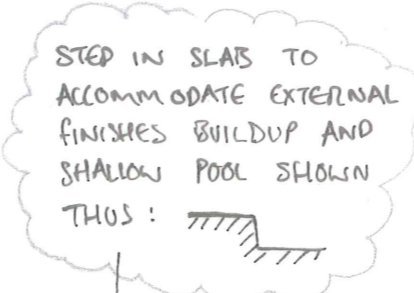 STEP IN SLAB TO
ACCOMMODATE EXTERNAL
FINISHES BUILDUP AND
SHALLOW POOL SHOWN
THUS :